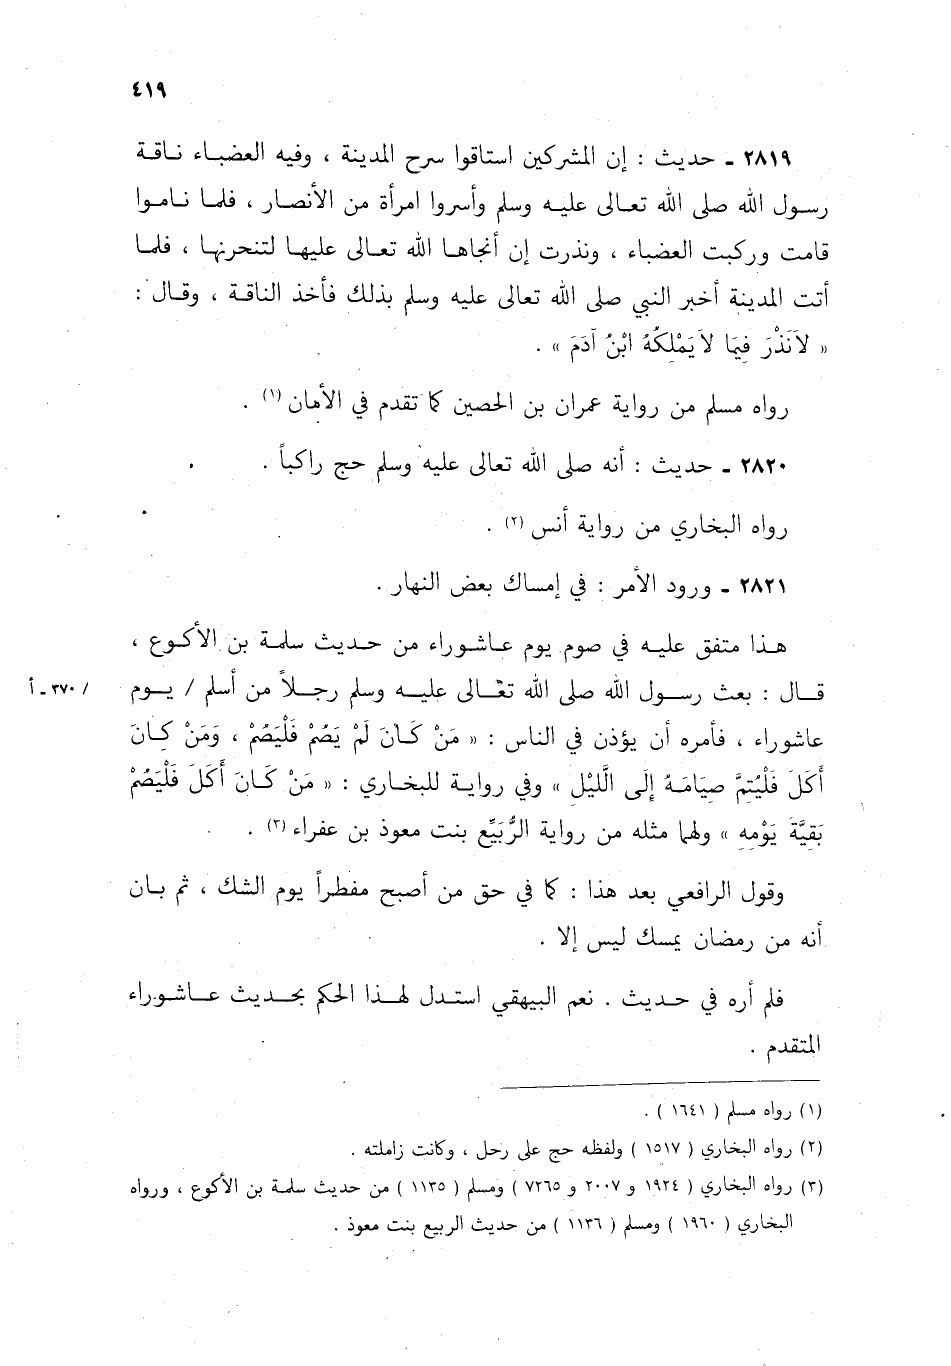 ٤١٩
٢٨١٩ ـ حديث : إن المشركين استاقوا سرح المدينة ، وفيه العضباء ناقة
رسول الله صلى الله تعالى عليه وسلم وأسروا امرأة من الأنصار ، فلما ناموا
قامت وركبت العضباء ، ونذرت إن أنجاها الله تعالى عليها لتنحرنها ، فلما
أتت المدينة أخبر النبي صلى الله تعالى عليه وسلم بذلك فأخذ الناقة ، وقال :
« لاَنَذْرَ فِيَما لاَيَمْلِكُهُ ابْنُ آدَمَ » .
رواه مسلم من رواية عمران بن الحصين كما تقدم في الأمان (١) .
٢٨٢٠ ـ حديث : أنه صلى الله تعالى عليه وسلم حج راكباً .
رواه البخاري من رواية أنس (٢) .
٢٨٢١ ـ ورود الأمر : في إمساك بعض النهار .
هذا متفق عليه في صوم يوم عاشوراء من حديث سلمة بن الأكوع ،
قال : بعث رسول الله صلى الله تعالى عليه وسلم رجلاً من أسلم / يوم / ٣٧٠ ـ أ
عاشوراء ، فأمره أن يؤذن في الناس : « مَنْ كَانَ لَمْ يَصُمْ فَلْيَصُمْ ، وَمَنْ كَانَ
أَكَلَ فَلْيُتِمَّ صِيَامَهُ إِلَى الَّليْلِ » وفي رواية للبخاري : « مَنْ كَانَ أَكَلَ فَلْيَصُمْ
بَقِيَّةَ يَوْمِهِ » ولهما مثله من رواية الرُّبَيِّع بنت معوذ بن عفراء (٣) .
وقول الرافعي بعد هذا : كما في حق من أصبح مفطراً يوم الشك ، ثم بان
أنه من رمضان يمسك ليس إلا .
فلم أره في حديث . نعم البيهقي استدل لهذا الحكم بحديث عاشوراء
المتقدم .
(١) رواه مسلم ( ١٦٤١ ) .
(٢) رواه البخاري ( ١٥١٧ ) ولفظه حج على رحل ، وكانت زاملته .
(٣) رواه البخاري ( ١٩٢٤ و ٢٠٠٧ و ٧٢٦٥ ) ومسلم ( ١١٣٥ ) من حديث سلمة بن الأكوع ، ورواه
البخاري ( ١٩٦٠ ) ومسلم ( ١١٣٦ ) من حديث الربيع بنت معوذ .